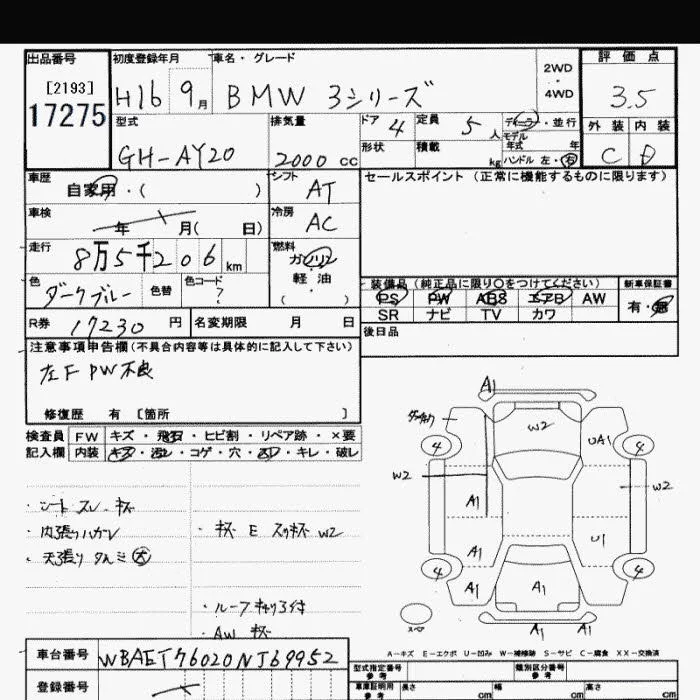 出品番号 初度登録年月 車名・グレード 評価点
[2193] 17275 H16 9月 BMW 3シリーズ 2WD・4WD 3.5
型式 排気量 ドア 4 定員 5人 ディーラー・並行 外装 内装
GH-AY20 2000cc 形状 積載 kg モデル年式 年 ハンドル 左・右 C D
車歴 シフト セールスポイント(正常に機能するものに限ります)
自家用・( ) AT
車検 冷房
年 月( 日) AC
走行 燃料
8万5千206km ガソリン
色 色替 色コード 軽油
ダークブルー ? ( )
装備品(純正品に限り○をつけてください) 新車保証書
PS PW ABS エアB AW 有・無
SR ナビ TV カワ
R券 17230円 名変期限 月 日 後日品
注意事項申告欄(不具合内容等は具体的に記入して下さい)
左F PW不良
修復歴 有 [箇所 ]
検査員 FW キズ・飛石・ヒビ割・リペア跡・×要
記入欄 内装 キズ・汚レ・コゲ・穴・スレ・キレ・破レ
・シートスレ
・内張りハガレ
・天張りタルミ大
・ E W2
・ルーフキャリア付
・AW
A1
W2
4 UA1 4
W2 W2
A1
A1 U1
4 4
A1 A1
スペア
A1 A1
A-キズ E-エクボ U-凹み W-補修跡 S-サビ C-腐食 XX-交換済
車台番号 WBAET76020NJ69952
登録番号
型式指定番号 参考 類別区分番号 参考
車庫証明用 参考 長さ cm 幅 cm 高さ cm